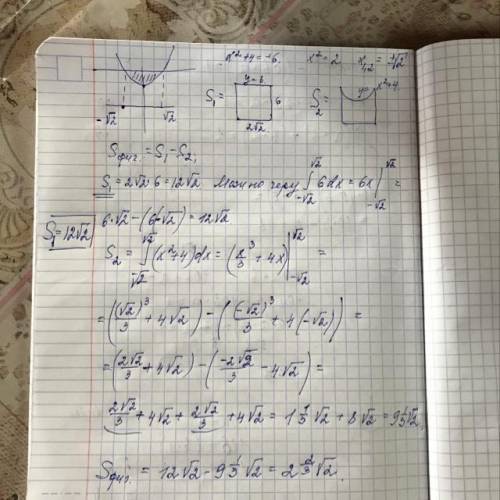 x²+4=6. x²=2 x₁,₂=±√2
y=6
S₁= 6
2√2
S₂ y=x²+4
-√2 √2
Sфиг.=S₁-S₂,
S₁=2√2·6=12√2 Можно через ∫_{-√2}^{√2} 6dx=6x|_{-√2}^{√2}=
6·√2-(6·(-√2))=12√2
S₁=12√2
S₂=∫_{-√2}^{√2}(x²+4)dx=(x³/3+4x)|_{-√2}^{√2}=
=((√2)³/3+4√2)-((-√2)³/3+4(-√2))=
=(2√2/3+4√2)-(-2√2/3-4√2)=
2√2/3+4√2+2√2/3+4√2=1 1/3√2+8√2=9 1/3√2
Sфиг.=12√2-9 1/3√2=2 2/3√2.